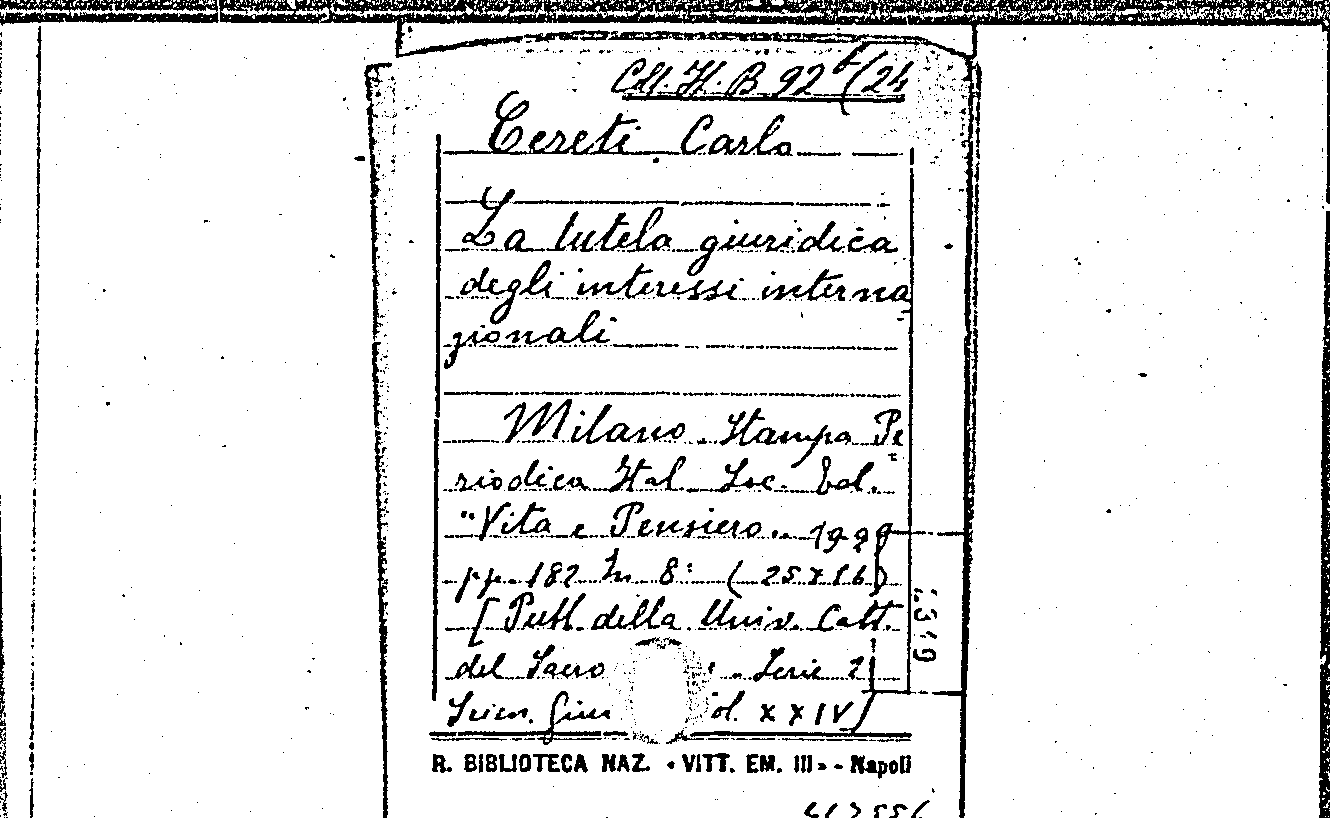 Coll. It. B 92 /24
Cereti Carlo
La tutela giuridica
degli interessi interna
zionali
Milano. Stampa Pe
riodica Ital. Soc. Ed.
"Vita e Pensiero.. 1929
pp. 182 In 8° (25x16)
[Publ. della Univ. Catt.
del Sacro . Serie 2
Scien. Giur ol. XXIV]
R. BIBLIOTECA NAZ. « VITT. EM. III » - Napoli